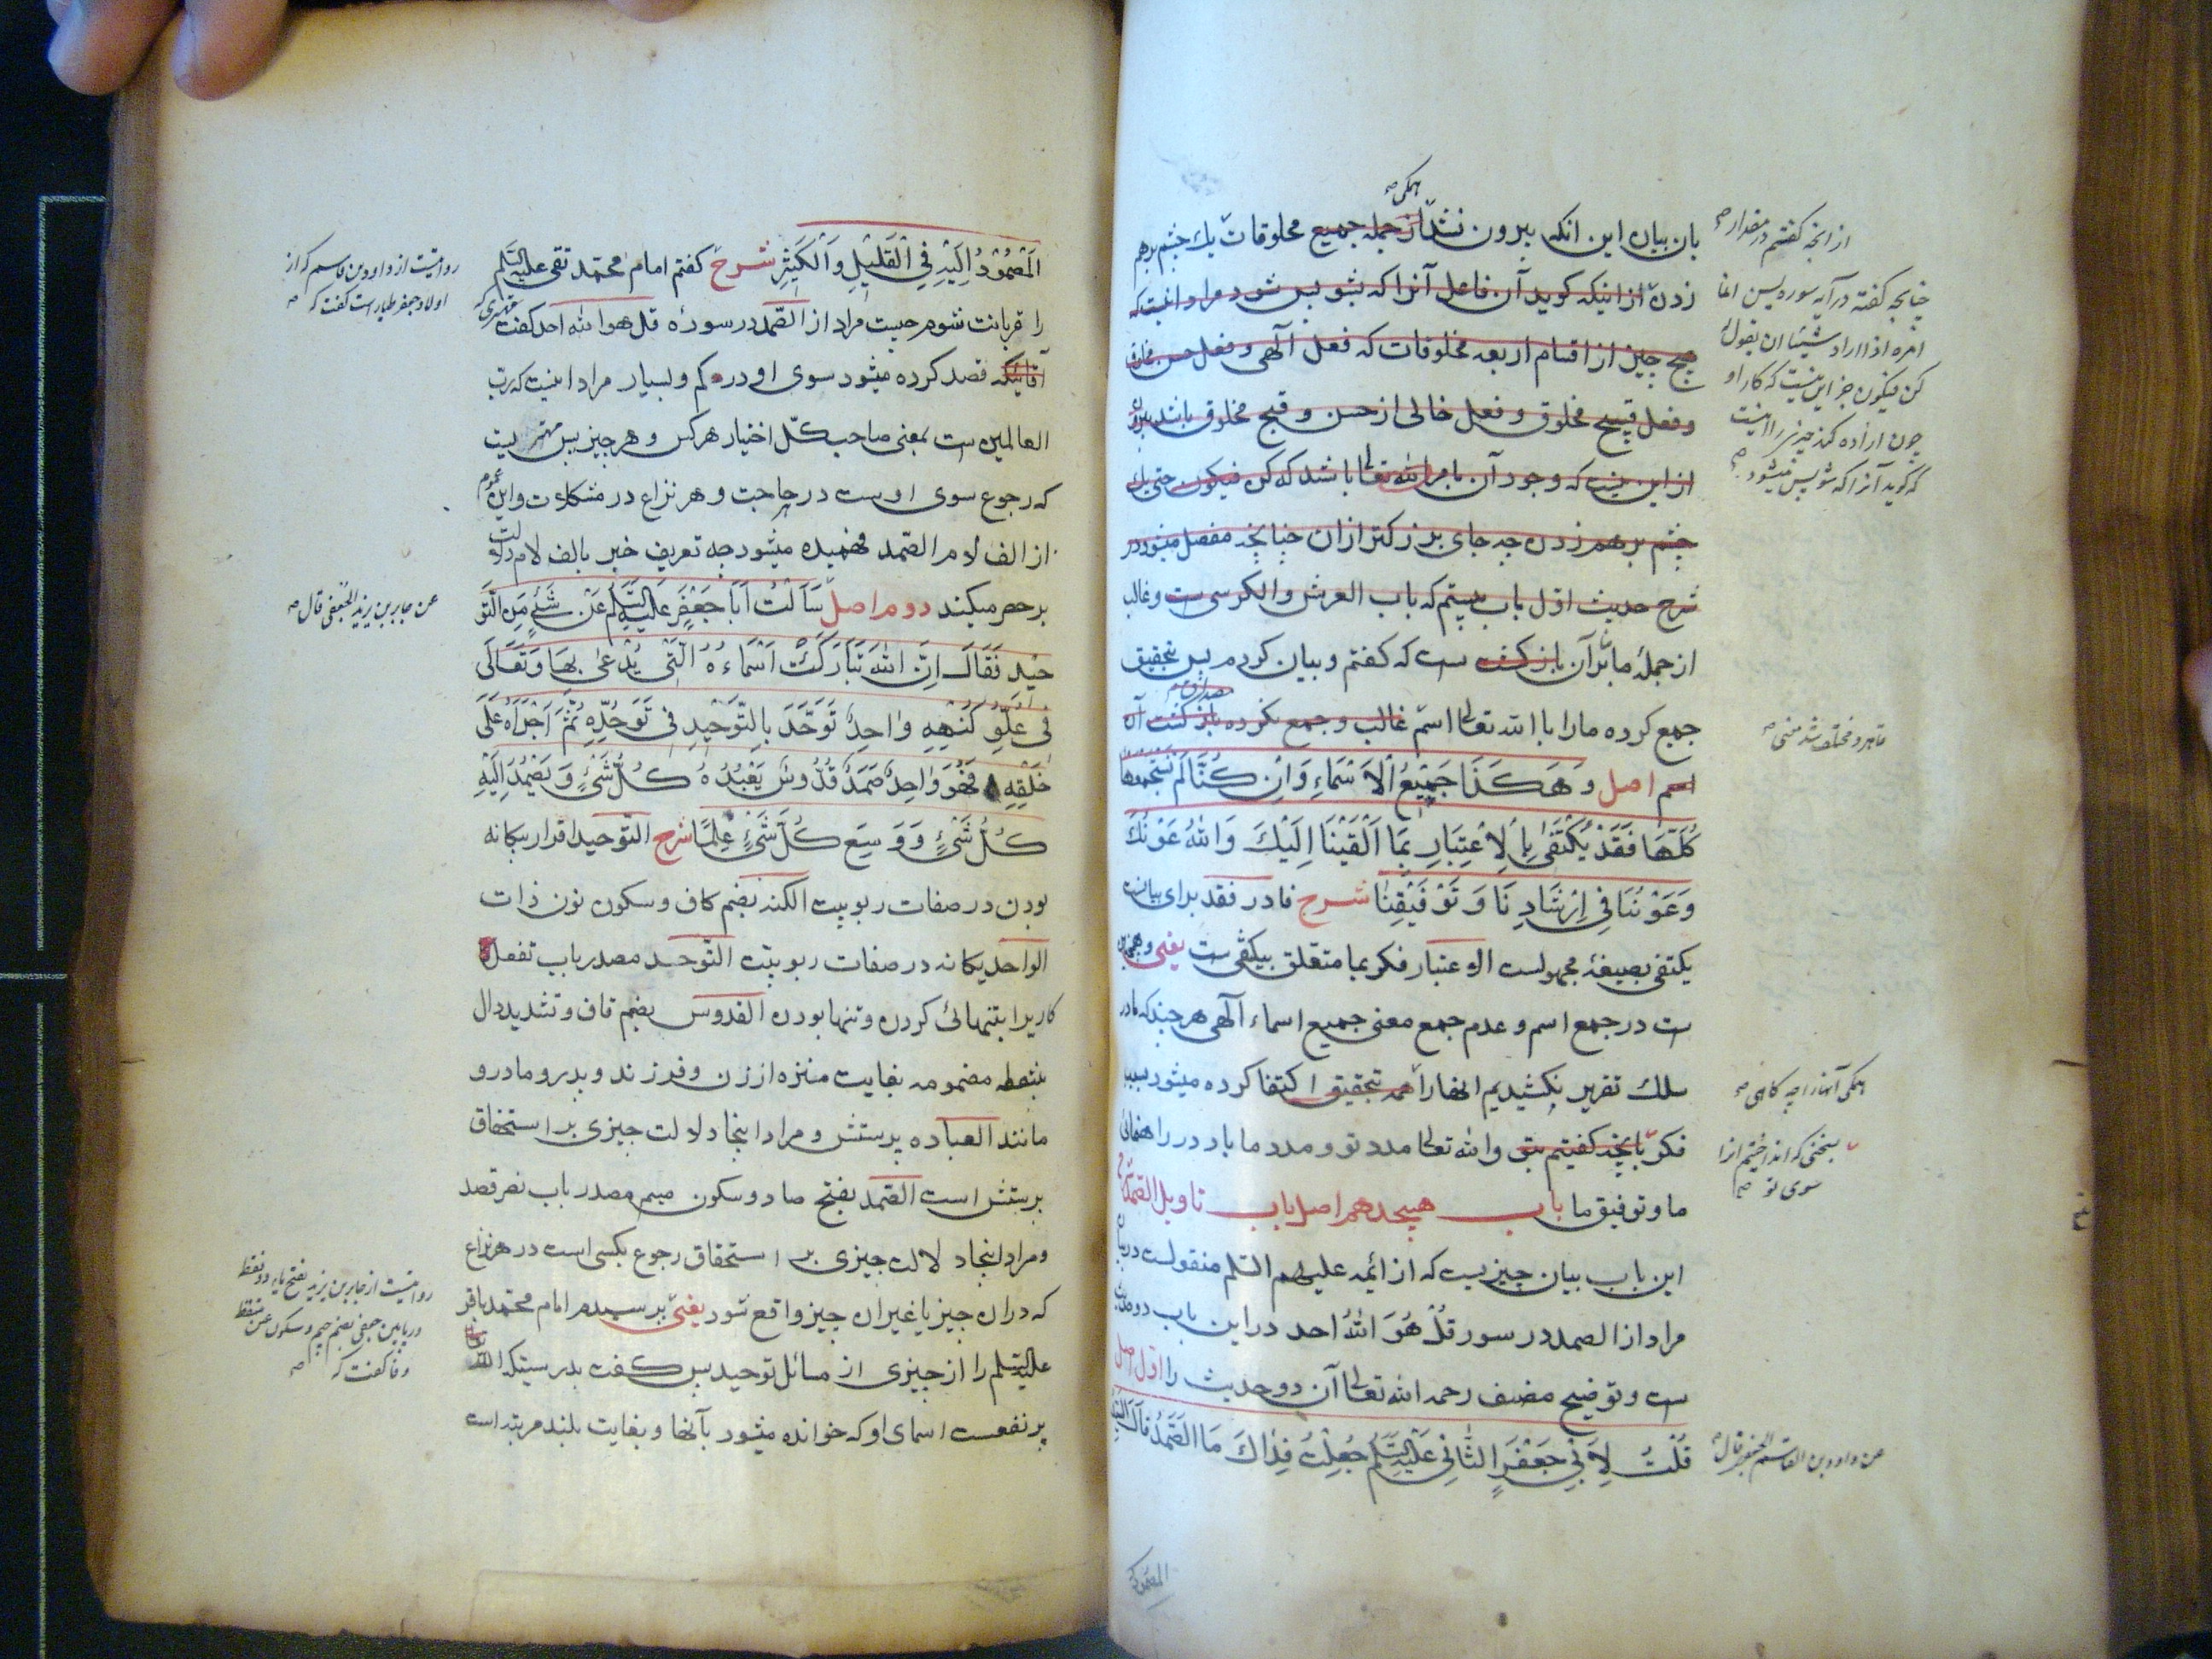 همکی صح
بان بیان این انکه بیرون نشد از جمله جمیع مخلوقات یك چشم برهم
زدن از اینکه کوید آن فاعل آنرا که بشو پس شود مراد اینست که
هیچ چیز از اقسام اربعه مخلوقات که فعل آلهی و فعل حسن مخلوق
و فعل قبیح مخلوق و فعل خالی از حسن و قبح مخلوق باشد بیرون
از این نیست که وجود آن بامر الله تعالی باشد که کن فیکون حتی یك
چشم برهم زدن چه جای بزرکتر از ان چنانچه مفصل میشود در
شرح حدیث اول باب بیستم که باب العرش والکرسی ست و غالب
از جملهٔ ما بر آن باز کشت ست که کفتم و بیان کردم پس بتحقیق
جمع کرده ما را با الله تعالی اسم غالب و جمع نکرده باز کشت آن
اسم اصل وَهٰكَذَا جَمِيْعُ الْاَسْمَاءِ وَاِنْ كُنَّا لَمْ نَسْتَجْمِعْهَا
كُلَّهَا فَقَدْ يُكْتَفٰى بِالْاِعْتِبَارِ بِمَا اَلْقَيْنَا اِلَيْكَ وَاللهُ عَوْنُكَ
وَعَوْنُنَا فِي اِرْشَادِنَا وَتَوْفِيْقِنَا شرح فا در فقد برای بیانست
یکتفی بصیغهٔ مجهولست الاعتبار فکر بما متعلق بیکتفی ست یعنی و همچنین
ست در جمع اسم و عدم جمع معنی جمیع اسماء آلهی هر چند که ما در
سلك تقریر نکشیدیم انها را همه بتحقیق اکتفا کرده میشود بسبب
فکر بانچه کفتیم بتو والله تعالی مدد تو و مدد ما باد در راهنمائی
ما و توفیق ما باب هیجدهم اصل باب تاویل الصمد شرح
این باب بیان چیزیست که از ائمه علیهم السلم منقولست در بیان
مراد از الصمد در سور قُلْ هُوَ اللهُ احد در این باب دو حدیث
ست و توضیح مصنف رحمه الله تعالی آن دو حدیث را اول اصل
قُلْتُ لِاَبِي جَعْفَرٍ الثَّانِي عَلَيْهِ السَّلَمُ جُعِلْتُ فِدَاكَ مَا الصَّمَدُ قَالَ السَّيِّدُ
از انچه کفتم در مقدار صح
چنانچه کفته در آیه سوره یس انما
امره اذا اراد شیئا ان یقول له
کن فیکون جز این نیست که کار او
چون اراده کند چیزی را اینست
که کوید آنرا که شو پس میشود صح
همکی آنها را چه کاهی صح
بسخنی که انداختیم انرا
سوی تو صح
عن داود بن القاسم الجعفری قال صح
المصمود
اَلْمَصْمُوْدُ اِلَيْهِ فِي الْقَلِيْلِ وَالْكَثِيْرِ شرح کفتم امام محمد تقی علیه السلم
را قربانت شوم چیست مراد از الصمد در سورهٔ قل هو الله احد کفت مهتری که
آقائیکه قصد کرده میشود سوی او در کم و بسیار مراد اینست که رب
العالمین ست بمعنی صاحب کل اختیار هر کس و هر چیز پس مهتریست
که رجوع سوی اوست در حاجت و هر نزاع در مشکلات و این عموم
از الف لام الصمد فهمیده میشود چه تعریف خبر بالف لام دلالت
بر حصر میکند دوم اصل سَاَلْتُ اَبَا جَعْفَرٍ عَلَيْهِ السَّلَمُ عَنْ شَيْءٍ مِنَ التَّوْ
حِيْدِ فَقَالَ اِنَّ اللهَ تَبَارَكَتْ اَسْمَاءُهُ الَّتِي يُدْعٰى بِهَا وَتَعَالٰى
فِي عُلُوِّ كُنْهِهِ وَاحِدٌ تَوَحَّدَ بِالتَّوْحِيْدِ فِي تَوَحُّدِهِ ثُمَّ اَجْرَاهُ عَلٰى
خَلْقِهِ فَهُوَ وَاحِدٌ صَمَدٌ قُدُّوسٌ يَعْبُدُهُ كُلُّ شَيْءٍ وَيَصْمُدُ اِلَيْهِ
كُلُّ شَيْءٍ وَوَسِعَ كُلَّ شَيْءٍ عِلْمًا شرح التوحید اقرار بیکانه
بودن در صفات ربوبیت الکنه بضم کاف و سکون نون ذات
الواحد یکانه در صفات ربوبیت التوحد مصدر باب تفعل
کاریرا بتنهائی کردن و تنها بودن القدوس بضم قاف و تشدید دال
بینقطه مضمومه بغایت منزه از زن و فرزند و پدر و مادر و
مانند العباده پرستش و مراد اینجا دلالت چیزی بر استحقاق
پرستش است الصمد بفتح صاد و سکون میم مصدر باب نصر قصد
و مراد اینجا دلالت چیزی بر استحقاق رجوع بکسی است در هر نزاع
که در ان چیز یا غیر ان چیز واقع شود یعنی پرسیدم امام محمد باقر
علیه السلم را از چیزی از مسائل توحید پس کفت بدرستیکه الله
پر نفعست اسمای او که خوانده میشود بآنها و بغایت بلند مرتبه است
روایتست از داود بن قاسم که از
اولاد جعفر طیار است کفت که صح
عن جابر بن یزید الجعفی قال صح
روایتست از جابر بن یزید بفتح یاء دو نقطه
در پایین جعفی بضم جیم و سکون عین بینقطه
و فا کفت که صح